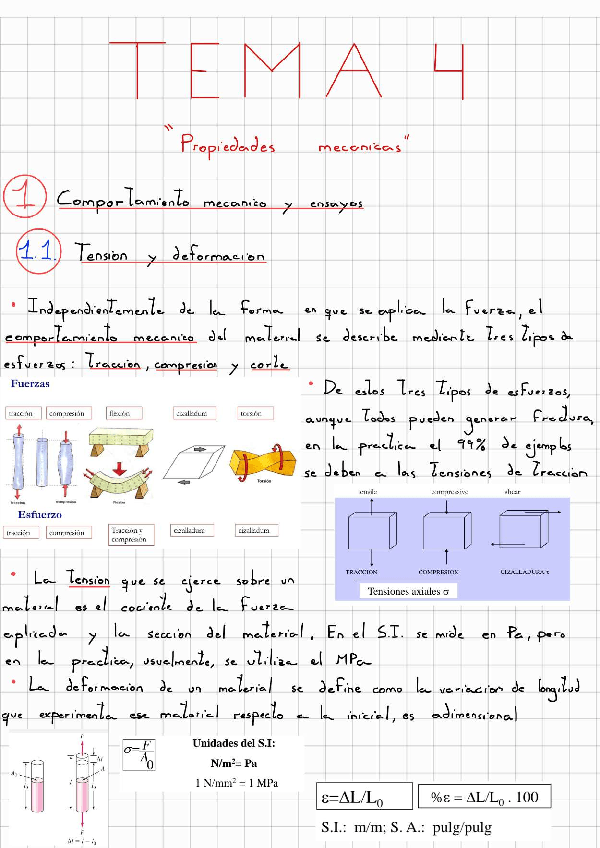 TEMA 4
"Propiedades mecanicas"
1 Comportamiento mecanico y ensayos
1.1. Tension y deformacion
• Independientemente de la forma en que se aplica la fuerza, el
comportamiento mecanico del material se describe mediante tres tipos de
esfuerzos: traccion, compresion y corte
Fuerzas
tracción compresión flexión cizalladura torsión
Torsión
Esfuerzo
tracción compresión Tracción y compresión cizalladura cizalladura
• De estos tres tipos de esfuerzos,
aunque todos pueden generar fractura,
en la practica el 99% de ejemplos
se deben a las tensiones de traccion
tensile compressive shear
TRACCION COMPRESION CIZALLADURA τ
Tensiones axiales σ
• La tension que se ejerce sobre un
material es el cociente de la fuerza
aplicada y la sección del material. En el S.I. se mide en Pa, pero
en la practica, usualmente, se utiliza el MPa
• La deformacion de un material se define como la variacion de longitud
que experimenta ese material respecto a la inicial, es adimensional
σ=F/A₀
Unidades del S.I:
N/m²= Pa
1 N/mm² = 1 MPa
F
F
Δl = l − l₀
ε=ΔL/L₀
%ε = ΔL/L₀ . 100
S.I.: m/m; S. A.: pulg/pulg